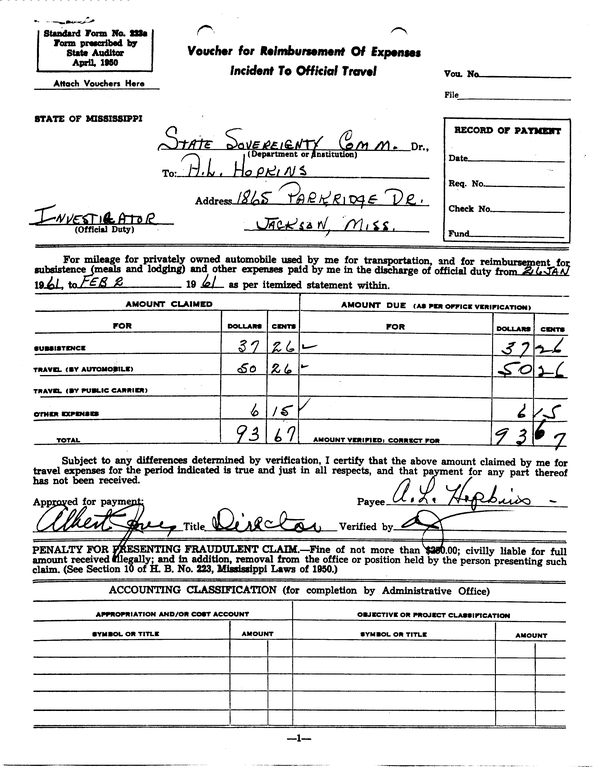 Standard Form No. 223a
Form prescribed by
State Auditor
April, 1950
Attach Vouchers Here
Voucher for Reimbursement Of Expenses
Incident To Official Travel
Vou. No.
File
STATE OF MISSISSIPPI
RECORD OF PAYMENT
Date
Req. No.
Check No.
Fund
STATE SOVEREIGNTY COMM. Dr.,
(Department or Institution)
To: A.L. HOPKINS
Address 1865 PARKRIDGE DR.
INVESTIGATOR JACKSON, MISS.
(Official Duty)
For mileage for privately owned automobile used by me for transportation, and for reimbursement for
subsistence (meals and lodging) and other expenses paid by me in the discharge of official duty from 26 JAN
1961, to FEB 2 1961 as per itemized statement within.
AMOUNT CLAIMED AMOUNT DUE (AS PER OFFICE VERIFICATION)
FOR DOLLARS CENTS FOR DOLLARS CENTS
SUBSISTENCE 37 26 37 26
TRAVEL (BY AUTOMOBILE) 50 26 50 26
TRAVEL (BY PUBLIC CARRIER)
OTHER EXPENSES 6 15 6 15
TOTAL 93 67 AMOUNT VERIFIED; CORRECT FOR 93 67
Subject to any differences determined by verification, I certify that the above amount claimed by me for
travel expenses for the period indicated is true and just in all respects, and that payment for any part thereof
has not been received.
Approved for payment: Payee A.L. Hopkins
Albert Jones Title Director Verified by
PENALTY FOR PRESENTING FRAUDULENT CLAIM.—Fine of not more than $250.00; civilly liable for full
amount received illegally; and in addition, removal from the office or position held by the person presenting such
claim. (See Section 10 of H. B. No. 223, Mississippi Laws of 1950.)
ACCOUNTING CLASSIFICATION (for completion by Administrative Office)
APPROPRIATION AND/OR COST ACCOUNT OBJECTIVE OR PROJECT CLASSIFICATION
SYMBOL OR TITLE AMOUNT SYMBOL OR TITLE AMOUNT
—1—